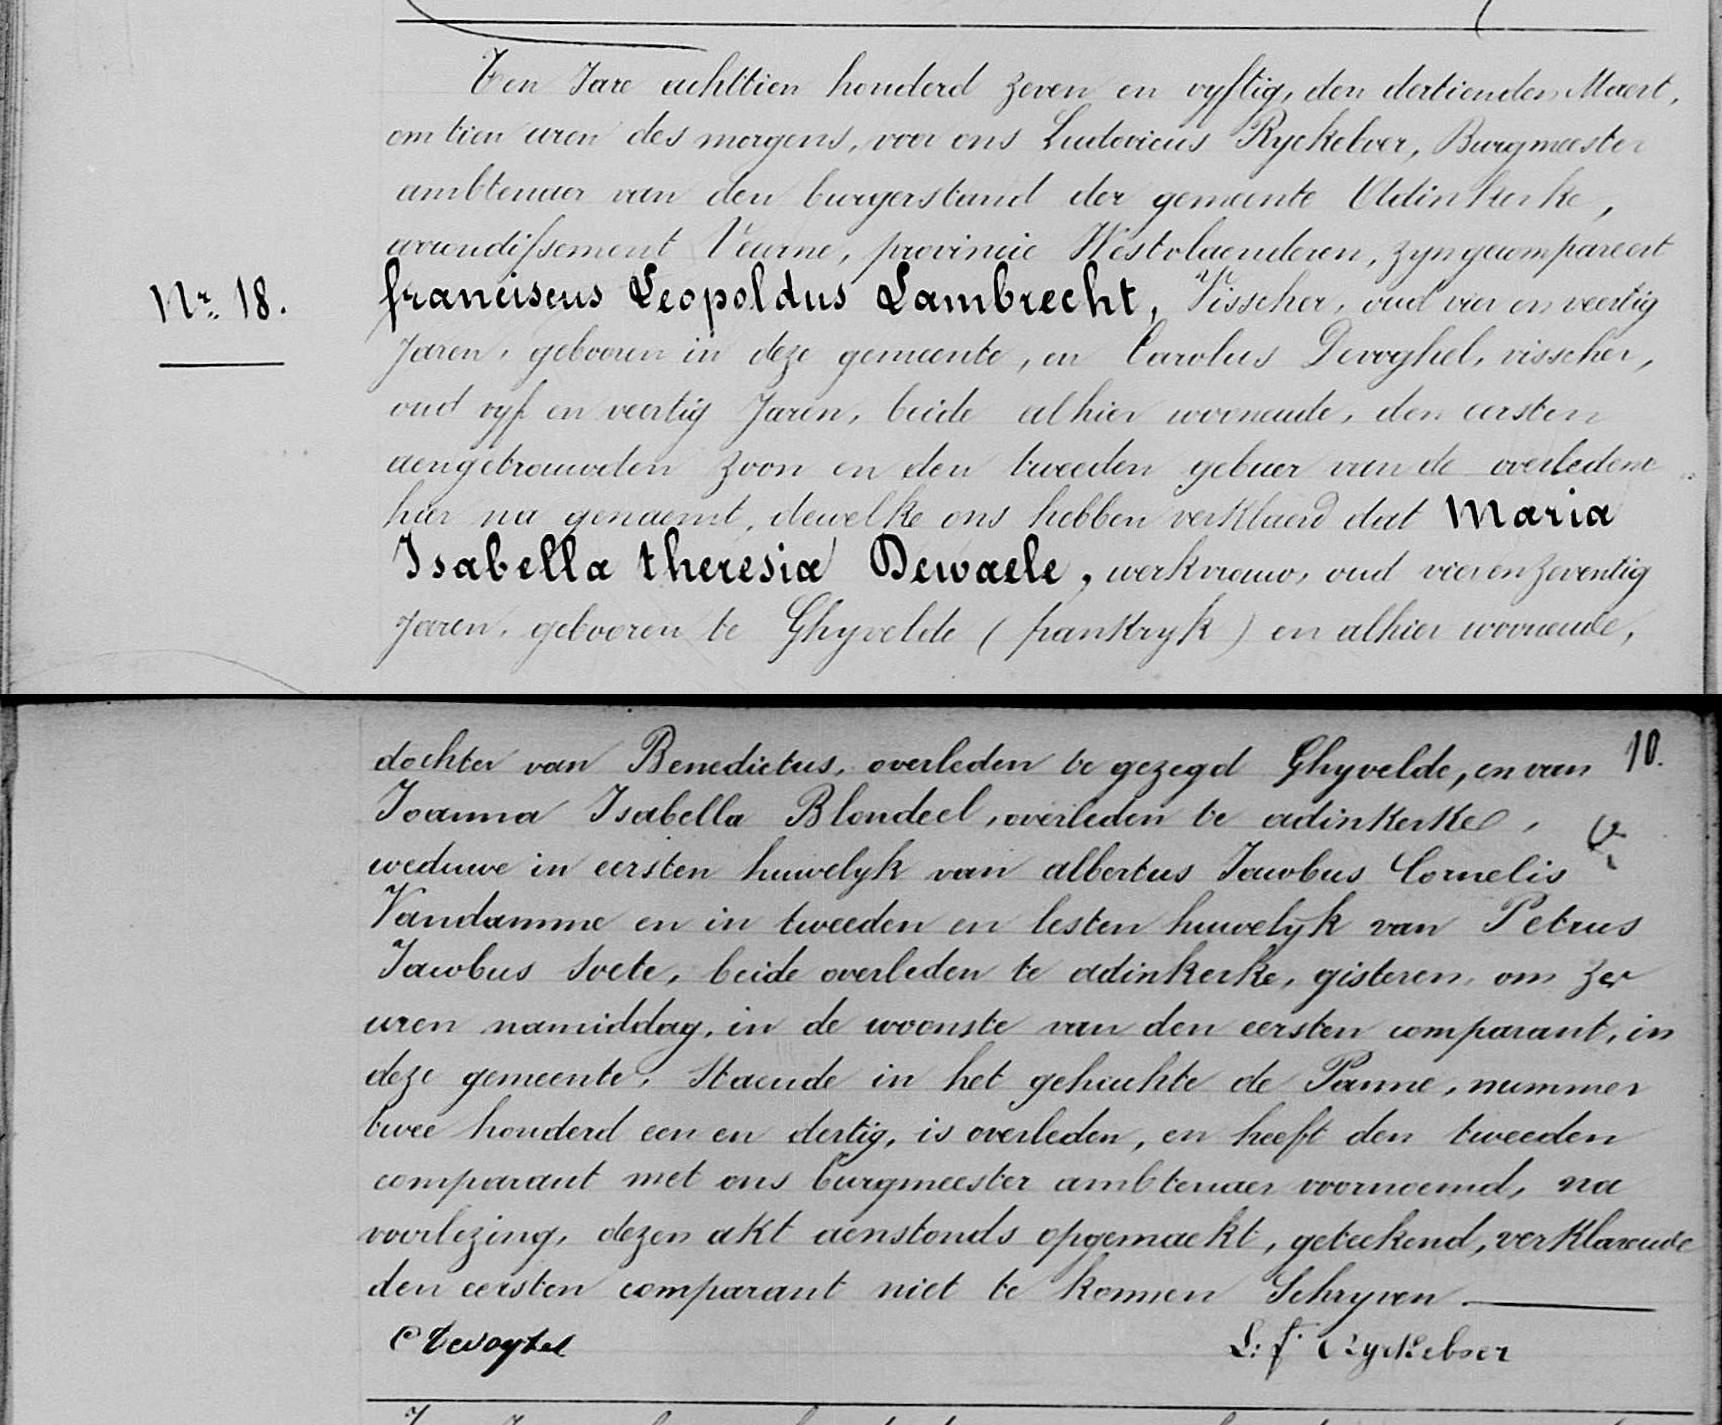 Ten Jare achttien honderd zeven en vyftig, den dertienden Maert,
om tien uren des morgens, voor ons Ludovicus Ryckeboer, Burgmeester
ambtenaer van den burgerstand der gemeente Adinkerke,
arrondissement Veurne, provincie Westvlaenderen, zyn gecompareert
Nr. 18.
franciscus Leopoldus Lambrecht, Visscher, oud vier en veertig
Jaren, gebooren in deze gemeente, en Carolus Devoghel, visscher,
oud vyf en veertig Jaren, beide alhier woonende, den eersten
aengetrouwden zoon en den tweeden gebuer van de overledene
hier na genaemt, dewelke ons hebben verklaerd dat Maria
Isabella theresia Dewaele, werkvrouw, oud vier en zeventig
Jaren, gebooren te Ghyvelde (frankryk) en alhier woonende,
10.
dochter van Benedictus, overleden te gezegd Ghyvelde, en van
Joanna Isabella Blondeel, overleden te adinkerke,
weduwe in eersten huwelyk van albertus Jacobus Cornelis
Vandamme en in tweeden en lesten huwelyk van Petrus
Jacobus Soete, beide overleden te adinkerke, gisteren, om zes
uren namiddag, in de woonste van den eersten comparant, in
deze gemeente, Staende in het gehuchte de Panne, nummer
twee honderd een en dertig, is overleden, en heeft den tweeden
comparant met ons burgmeester ambtenaer voornoemd, na
voorlezing, dezen akt aenstonds opgemaekt, geteekend, verklarende
den eersten comparant niet te konnen Schryven.
C Devoghel
L: f Ryckeboer